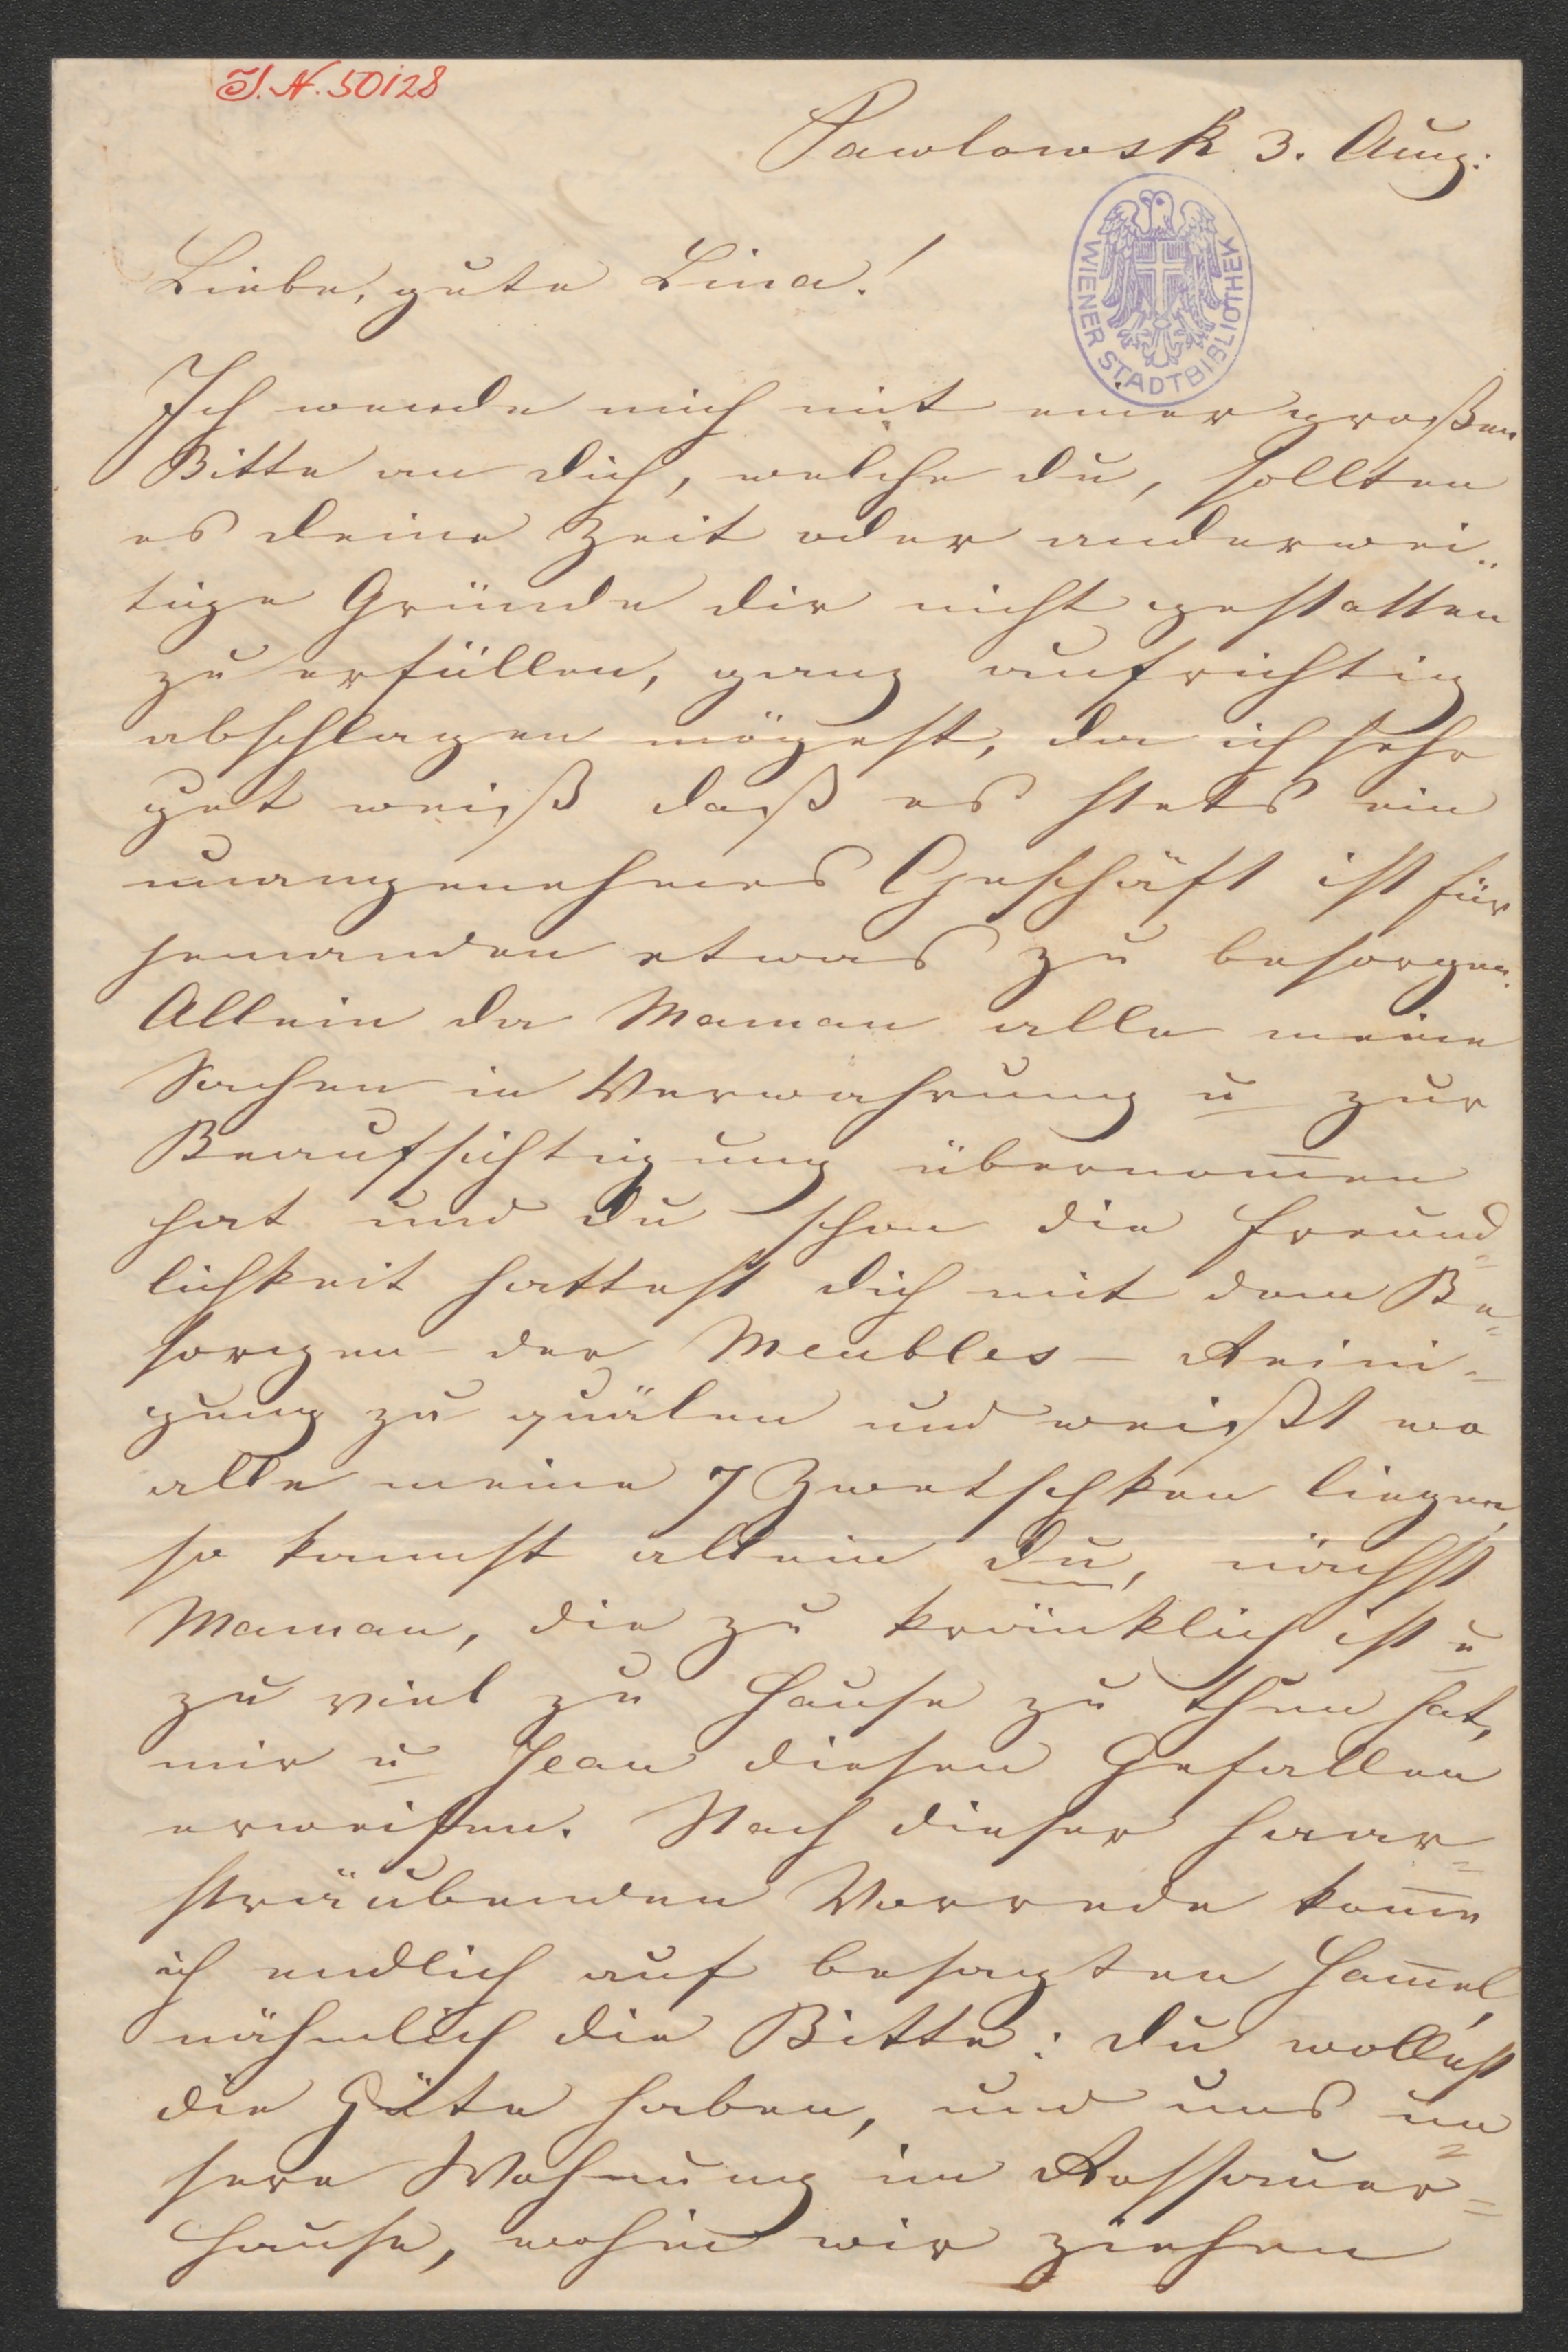 J. N. 50128
Pawlowsk 3. Aug:
WIENER STADTBIBLIOTHEK
Liebe, gute Lina!
Ich wende mich mit einer großen
Bitte an dich, welche du, sollten
es deine Zeit oder anderwei-
tige Gründe dir nicht gestatten
zu erfüllen, ganz aufrichtig
abschlagen mögest, da ich sehr
gut weiß daß es stets ein
unangenehmes Geschäft ist für
jemanden etwas zu besorgen.
Allein da Maman alle meine
Sachen in Verwahrung u zur
Beaufsichtigung übernom̅en
hat und du schon die Freund=
lichkeit hattest dich mit dem Be=
sorgen der Meubles-Reini-
gung zu quälen und weißt wo
alle meine 7 Zwetschken liegen,
so kannst allein du, nächst
Maman, die zu kränklich ist u
zu viel zu Hause zu thun hat,
mir u Jean diesen Gefallen
erweisen. Nach dieser haar=
sträubenden Vorrede kom̅e
ich endlich auf besagten Ham̅el,
nähmlich die Bitte: du wollest
die Güte haben, und uns un=
sere Wohnung im Rossauer=
hause, wohin wir ziehen